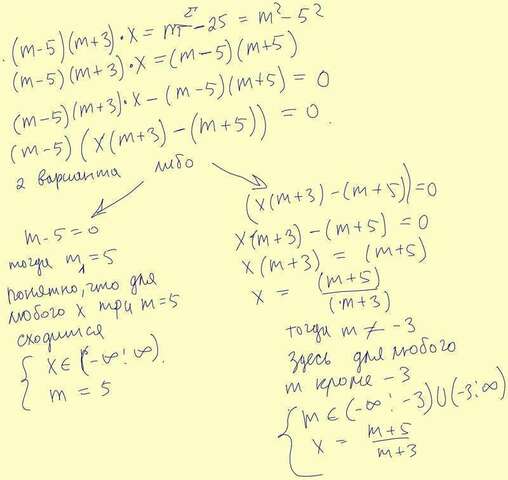 (m-5)(m+3)·x = m²-25 = m²-5²
(m-5)(m+3)·x = (m-5)(m+5)
(m-5)(m+3)·x-(m-5)(m+5) = 0
(m-5)(x(m+3)-(m+5)) = 0.
2 варианта либо
m-5=0
тогда m₁=5
понятно, что для
любого x при m=5
сходится
{ x∈(-∞;∞).
m = 5
(x(m+3)-(m+5))=0
x(m+3)-(m+5) = 0
x(m+3) = (m+5)
x = (m+5)/(m+3)
тогда m ≠ -3
здесь для любого
m кроме -3
{ m∈(-∞;-3)∪(-3;∞)
x = m+5/m+3